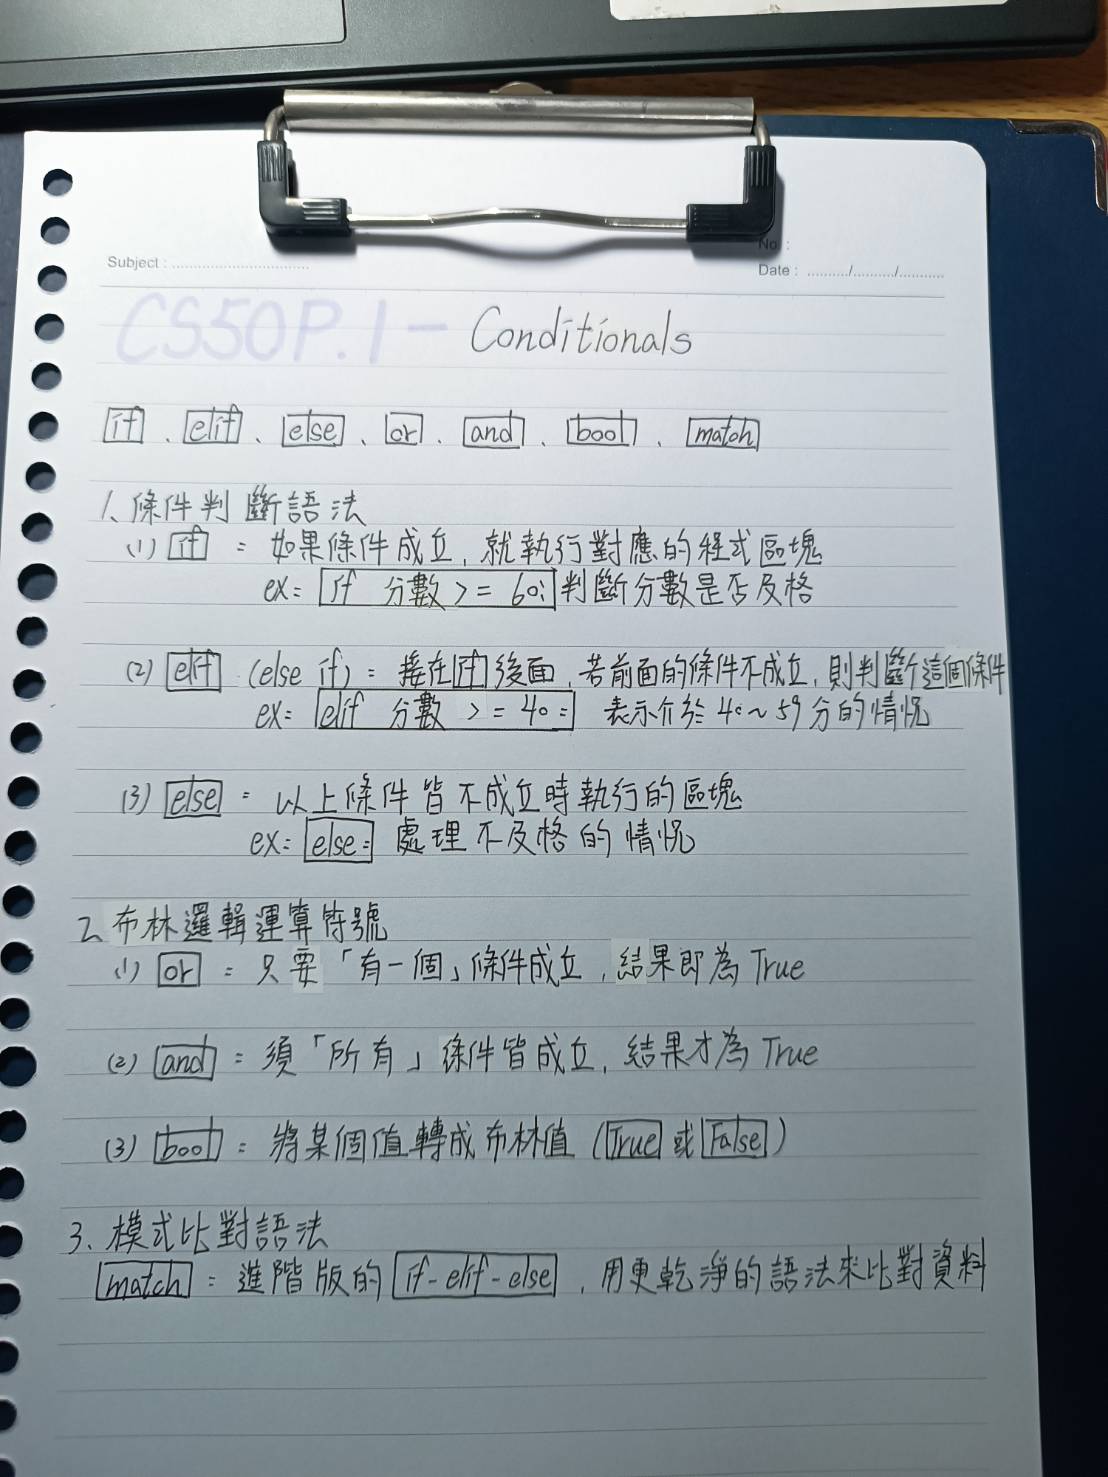 No :
Subject :
Date : / /
CS50P.1 - Conditionals
if 、 elif 、 else 、 or 、 and 、 bool 、 match
1、條件判斷語法
(1) if : 如果條件成立, 就執行對應的程式區塊
ex: if 分數 >= 60: 判斷分數是否及格
(2) elif (else if) : 接在 if 後面, 若前面的條件不成立, 則判斷這個條件
ex: elif 分數 >= 40 : 表示介於 40~59 分的情況
(3) else : 以上條件皆不成立時執行的區塊
ex: else: 處理不及格的情況
2、布林邏輯運算符號
(1) or : 只要「有一個」條件成立, 結果即為 True
(2) and : 須「所有」條件皆成立, 結果才為 True
(3) bool : 將某個值轉成布林值 (True 或 False)
3、模式比對語法
match : 進階版的 if-elif-else , 用更乾淨的語法來比對資料